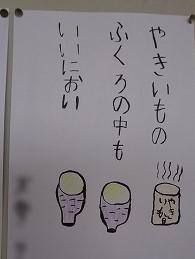 やきいもの
ふくろの中も
いいにおい
やき
いも